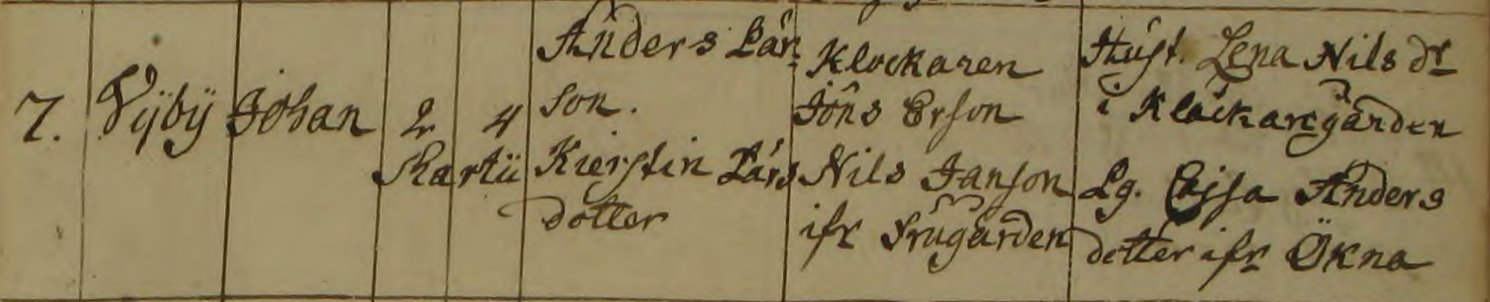 7. Vÿbÿ Johan 2 4
Martii
Anders Lars
son.
Kierstin Lars
dotter
Klockaren
Jöns Erson
Nils Janson
ifr Frugården
Hust. Lena Nils dr
i Klåckaregården
Pg. Cajsa Anders
dotter ifr Ökna